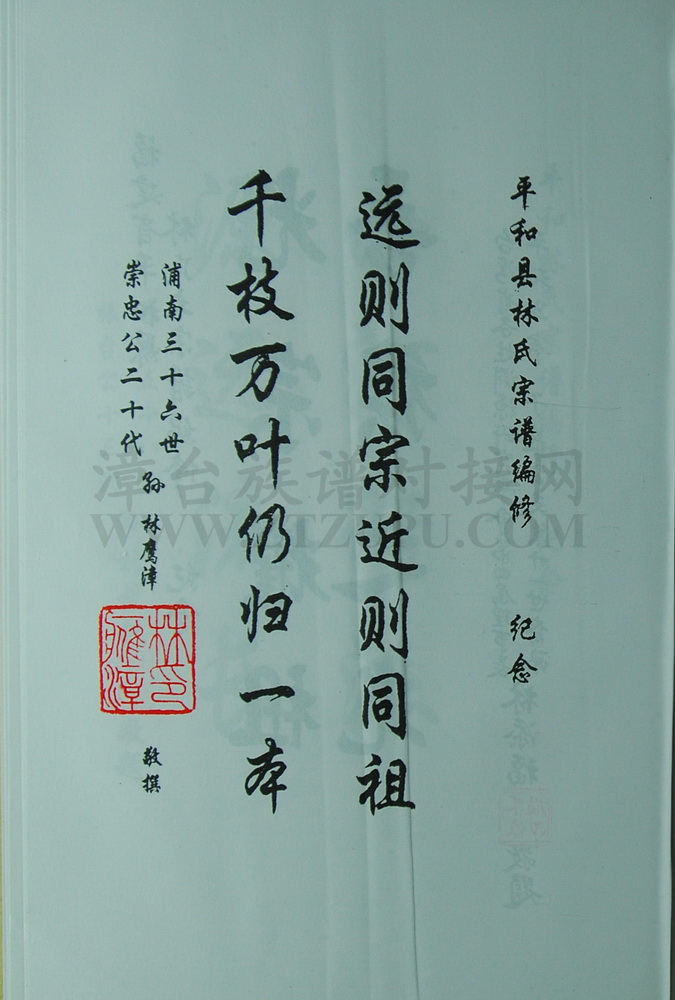 平和县林氏宗谱编修 纪念
远则同宗近则同祖
千枝万叶仍归一本
浦南三十六世
崇忠公二十代
孙 林鹰漳
敬撰
漳台族谱对接网